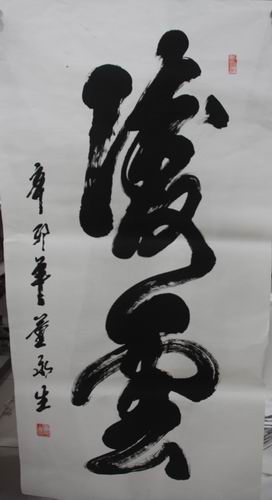 凌雲
辛卯 董永生